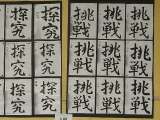 探究 探究 挑戦 挑戦 挑戦
探究 探究 挑戦 挑戦 挑戦
探究 探究 挑戦 挑戦 挑戦